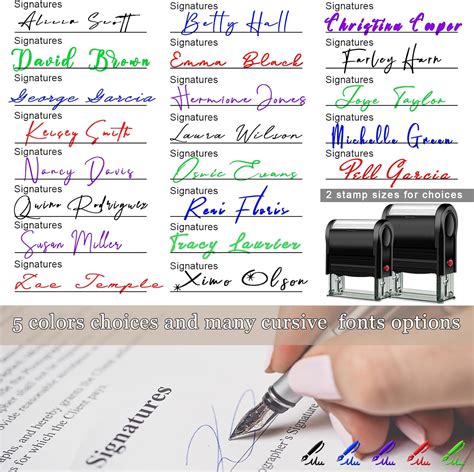 Signatures
Alicia Scott
Signatures
David Brown
Signatures
George Garcia
Signatures
Kelsey Smith
Signatures
Nancy Davis
Signatures
Quino Rodriguez
Signatures
Susan Miller
Signatures
Zae Temple
Signatures
Betty Hall
Signatures
Emma Black
Signatures
Hermione Jones
Signatures
Laura Wilson
Signatures
Osnic Evans
Signatures
Reni Floris
Signatures
Tracy Laurier
Signatures
Ximo Olson
Signatures
Christina Cooper
Signatures
Farley Harn
Signatures
Joye Taylor
Signatures
Michelle Green
Signatures
Pell Garcia
2 stamp sizes for choices
5 colors choices and many cursive fonts options
Signatures